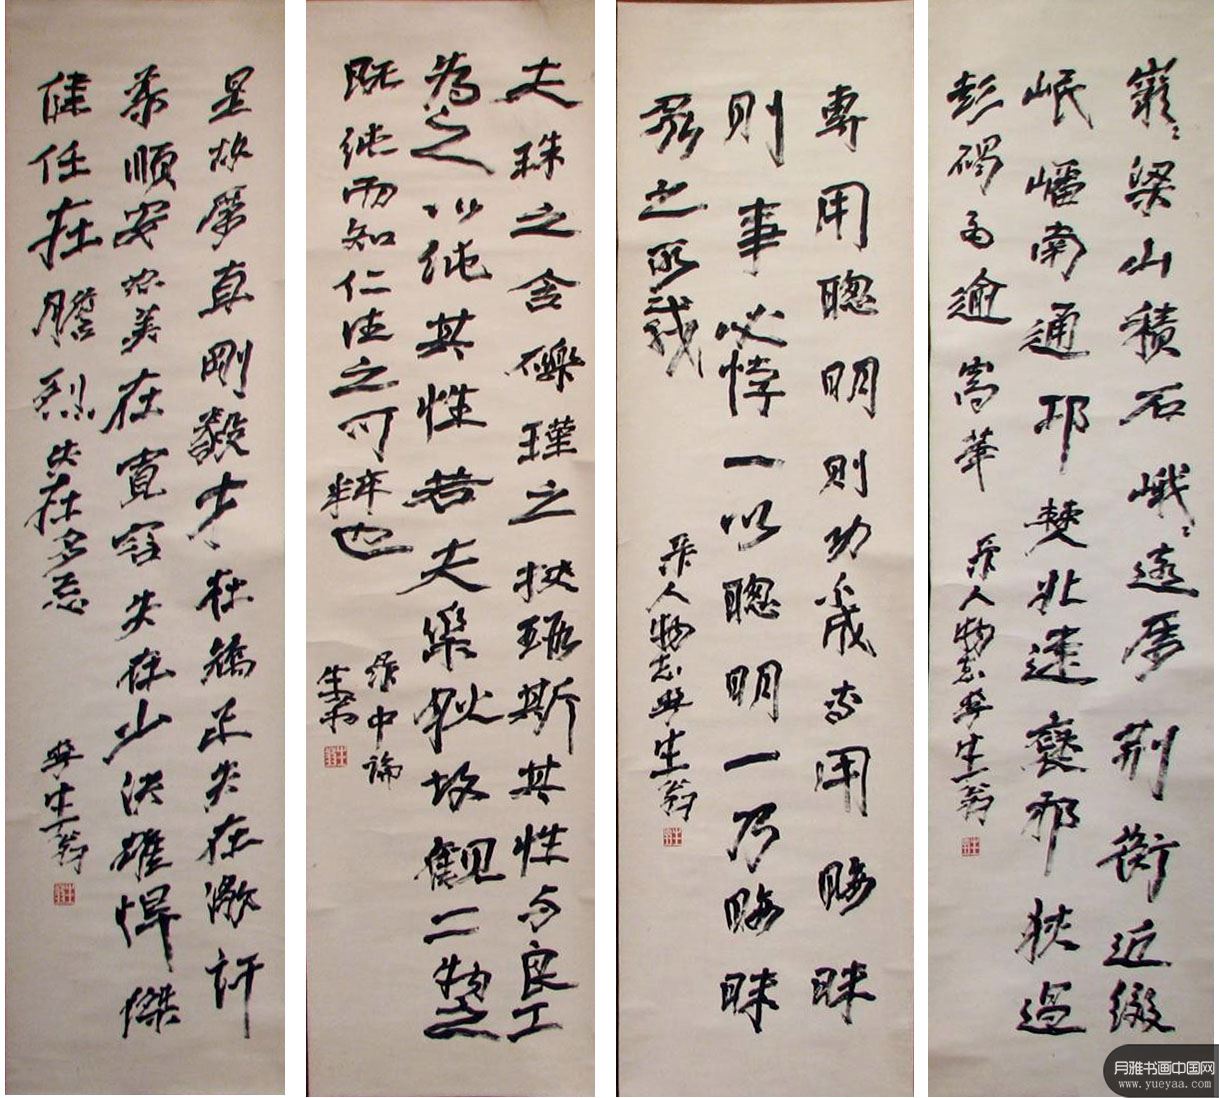 巖巖梁山積石峨峨遠屬荆衡近綴
岷嶓南通邛僰北達褒邪狹過
彭碣高逾嵩華
录人物志李生翁
專用聰明則功不成專用晦昧
則事必悖一以聰明一乃晦昧
眾之所載
录人物志李生翁
夫珠之含礫瑾之挾瑕斯其性与良工
為之以純其性若夫故觀二物之
既純而知仁德之可粹也
录中論
生翁
是故厲直剛毅才在矯正失在激訐
柔順安恕美在寬容失在少決雄悍傑
健任在膽烈失在多忌
李生翁
月雅书画中国网
www.yueyaa.com